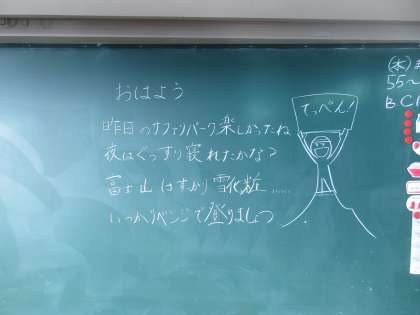 おはよう
昨日のサファリパーク楽しかったね
夜はぐっすり寝れたかな？
富士山はすっかり雪化粧……
いつかリベンジで登りましょう
てっぺん！
(水)
55～
B C